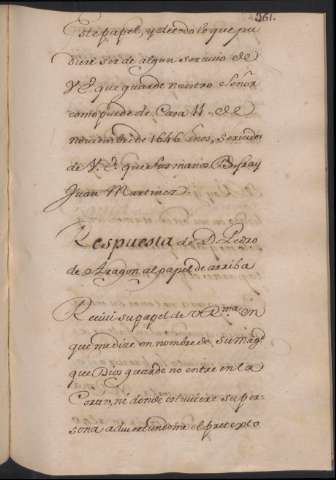 361.
Este papel, y siendo lo que pu
diere ser de algun seruicio de
V. E. que guarde nuestro Señor
como puede de Cassa 11 de
noviembre de 1646 años, seruidor
de V. E. que sus manos B. fray
Juan Martinez.
Respuesta de D. Pedro
de Aragon al papel de arriba
Reciui su papel de V. Rma. en
que me dize en nombre de su Magd.
que Dios guarde no entre en la
Corte, ni donde estuuiere su per
sona aduirtiendome el pretexto